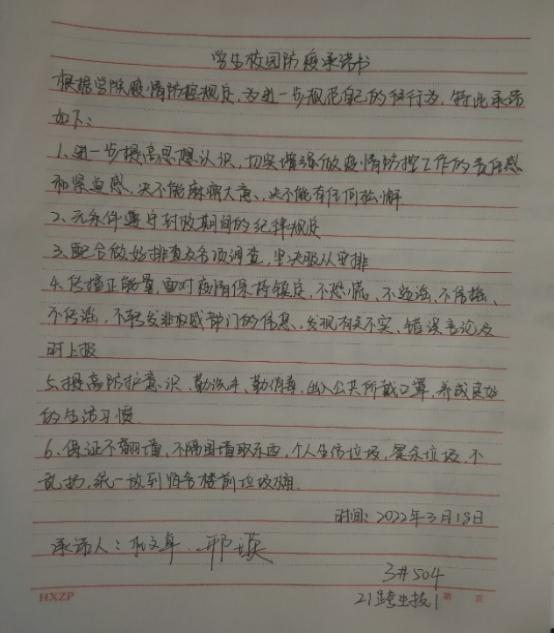 学生校园防疫承诺书
根据学院疫情防控规定,为进一步规范自己的行为,特此承诺
如下:
1、进一步提高思想认识,切实增强做疫情防控工作的责任感
和紧迫感,决不能麻痹大意、决不能有任何松懈
2、无条件遵守封校期间的纪律规定
3、配合做好排查及各项调查,坚决服从安排
4、传播正能量,面对疫情保持镇定,不恐慌、不造谣、不传播、
不信谣,不转发非权威部门的信息、发现有关不实、错误言论及
时上报
5、提高防护意识、勤洗手、勤消毒,出入公共场所戴口罩,养成良好
的生活习惯
6、保证不翻墙,不隔围墙取东西,个人生活垃圾,餐余垃圾,不
乱扔,统一放到宿舍楼前垃圾桶.
时间:2022年3月18日
承诺人:
3#504
21
HXZP 第 页